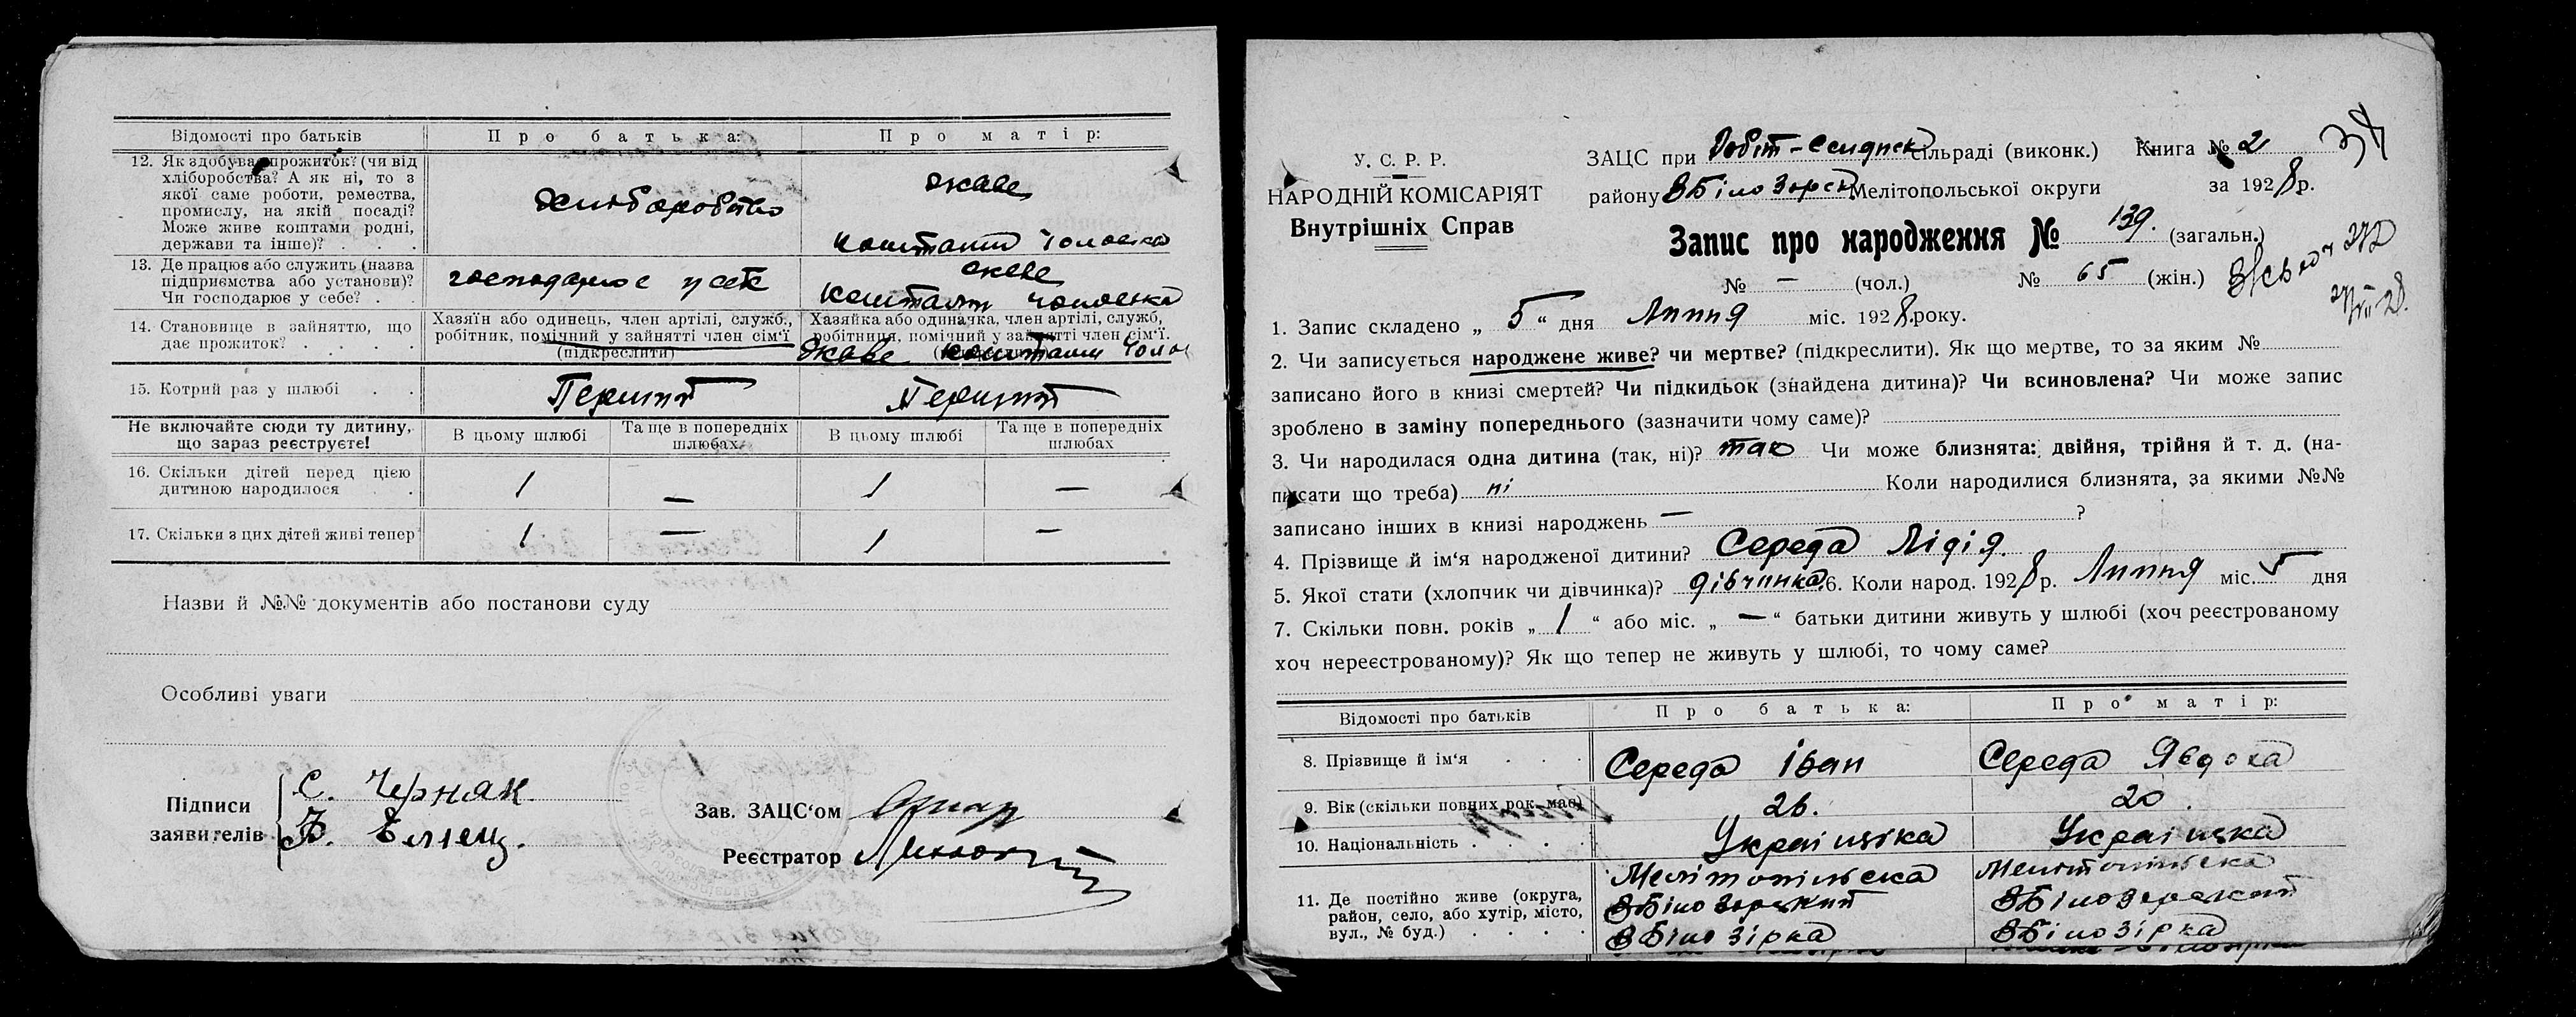 Відомості про батьків Про батька: Про матір:
12. Як здобуває прожиток? (чи від хліборобства? А як ні, то з якої саме роботи, ремества, промислу, на якій посаді? Може живе коштами родні, держави та інше)? . . .
Хліборобство
живе
коштами чоловіка
13. Де працює або служить (назва підприємства або установи)? Чи господарює у себе? . .
господарює у себе
живе
коштами чоловіка
14. Становище в зайняттю, що дає прожиток? . . . .
Хазяїн або одинець, член артілі, служб., робітник, помічний у зайнятті член сім'ї (підкреслити)
Хазяйка або одиначка, член артілі, служб, робітниця, помічний у зайнятті член сім'ї.
живе коштами
15. Котрий раз у шлюбі . . Перший Перший
Не включайте сюди ту дитину, що зараз реєструєте!
В цьому шлюбі Та ще в попередніх шлюбах В цьому шлюбі Та ще в попередніх шлюбах
16. Скільки дітей перед цією дитиною народилося . 1 — 1 —
17. Скільки з цих дітей живі тепер 1 — 1 —
Назви й №№ документів або постанови суду
Особливі уваги
Підписи заявителів
С. Черняк
Зав. ЗАЦС'ом
Реєстратор
У. С. Р. Р.
НАРОДНІЙ КОМІСАРІЯТ
Внутрішніх Справ
ЗАЦС при сільраді (виконк.) Книга № 2
району ВБілозорск Мелітопольської округи за 1928 р.
Запис про народження № 139. (загальн.)
№ — (чол.) № 65 (жін.)
1. Запис складено „ 5 “ дня Липня міс. 1928 року.
2. Чи записується народжене живе? чи мертве? (підкреслити). Як що мертве, то за яким №
записано його в книзі смертей? Чи підкидьок (знайдена дитина)? Чи всиновлена? Чи може запис
зроблено в заміну попереднього (зазначити чому саме)?
3. Чи народилася одна дитина (так, ні)? так Чи може близнята: двійня, трійня й т. д. (на-
писати що треба) ні Коли народилися близнята, за якими №№
записано інших в книзі народжень — ?
4. Прізвище й ім'я народженої дитини? Середа Лідія.
5. Якої стати (хлопчик чи дівчинка)? дівчинка 6. Коли народ. 1928 р. Липня міс. 5 дня
7. Скільки повн. років „ 1 “ або міс. „ — “ батьки дитини живуть у шлюбі (хоч реєстрованому
хоч нереєстрованому)? Як що тепер не живуть у шлюбі, то чому саме?
Відомості про батьків Про батька: Про матір:
8. Прізвище й ім'я . . . Середа Іван Середа Явдоха
9. Вік (скільки повних рок. має) 26. 20.
10. Національність . . . . Українська Українська
11. Де постійно живе (округа, район, село, або хутір, місто, вул., № буд.) . . . .
Мелітопільска Мелітопільска
ВБілозорский ВБілозерский
ВБілозірка ВБілозірка